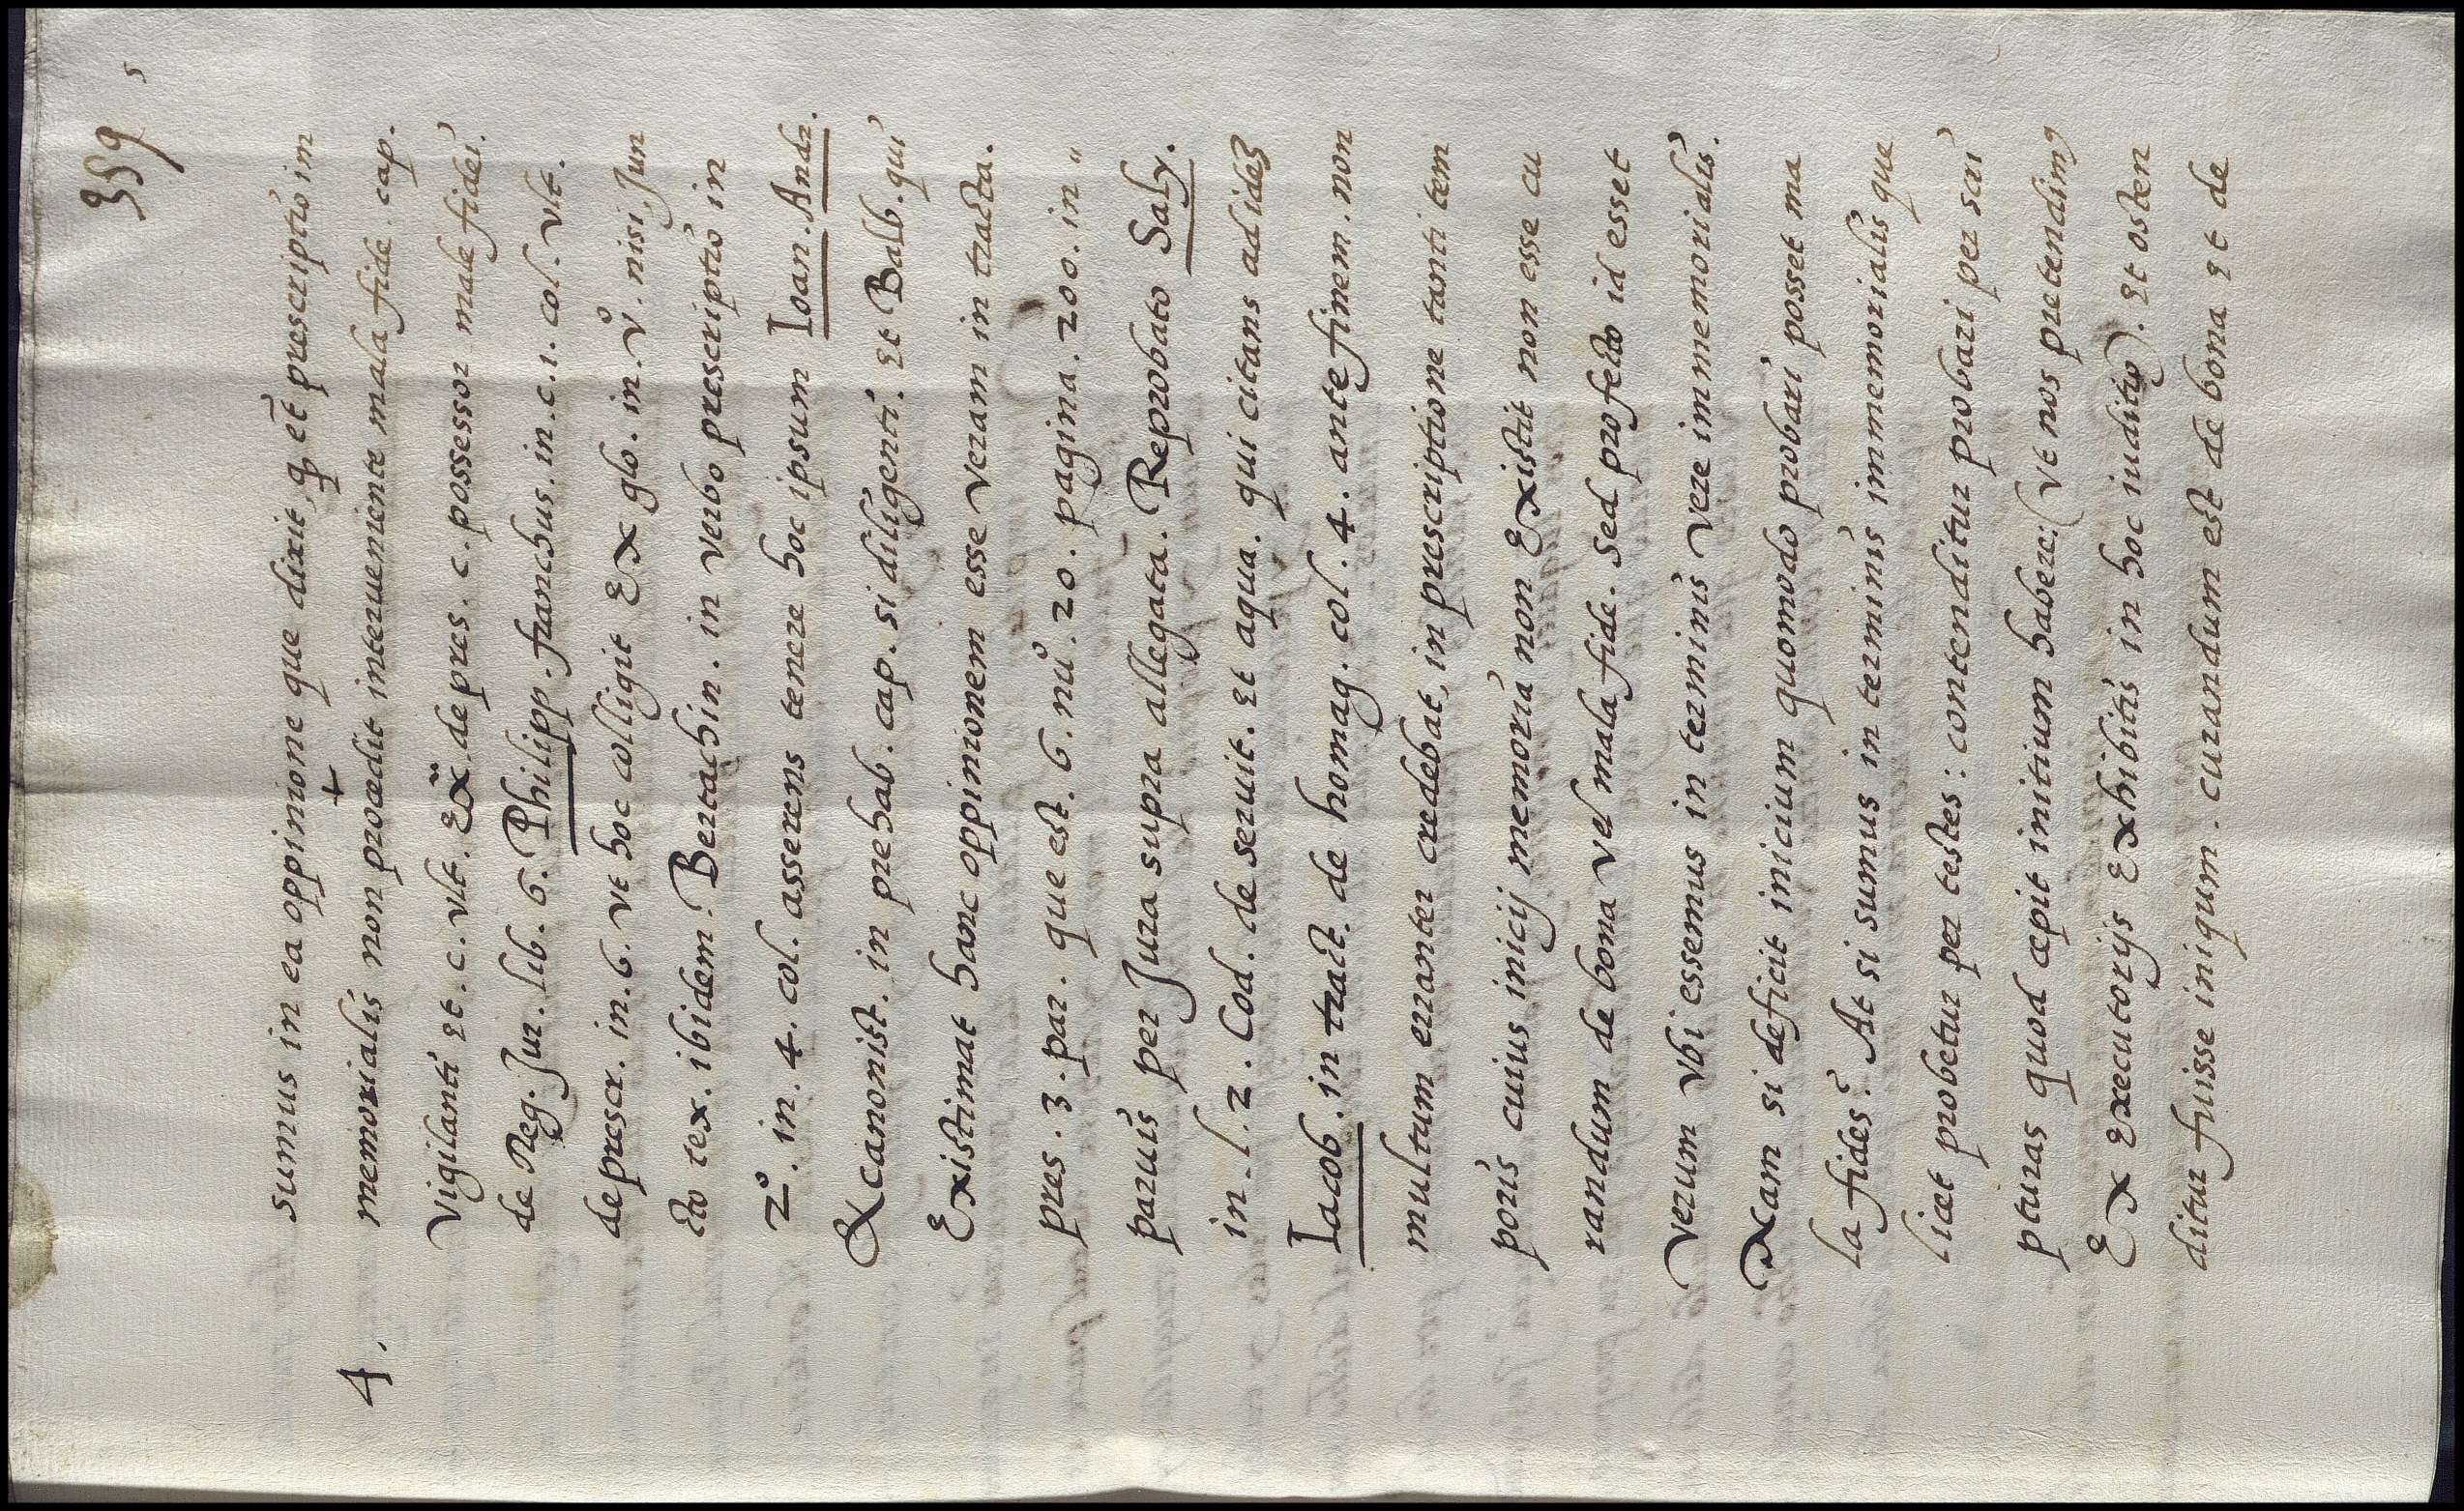 359
sumus in ea oppinione que dixit, ꝙ et̄ prescriptio im
4. memorialis non procedit interueniente mala fide. cap.
Vigilanti et. c. vlt. Ex̃. de pres. c. possessor male fidei.
de Reg. Jur. lib. 6. Philipp. franchus. in. c. 1. col. vlt.
de prescr. in. 6. vt hoc colligit Ex glo. in. v.º nisi, Jun
cto tex. ibidem. Bertachin. in verbo prescriptio in
2º. in. 4. col. asserens tenere hoc ipsum Ioan. Andr.
& canonist. in prehab. cap. si diligenti. et Balb. qui
Existimat hanc oppinionem esse veram in tracta.
pres. 3. par. que est. 6. nuº. 20. pagina. 200. in "
paruis per Jura supra allegata. Reprobato Saly.
in. l. 2. Cod. de seruit. et aqua. qui citans ad idez
Iacob. in tract. de homag. col. 4. ante finem. non
multum erranter credebat, in prescriptione tanti tem
poris cuius inicij memoria non Existit non esse cu
randum de bona vel mala fide. sed profecto id esset
verum vbi essemus in terminis vere immemorialis.
Nam si deficit inicium quomodo probari posset ma
la fides? At si sumus in terminis immemorialis que
licet probetur per testes: contenditur probari per scri
pturas quod cepit initium habere: (vt nos pretendimꝰ
Ex executorijs Exhibitis in hoc iuditio). et osten
ditur fuisse iniqum. curandum est de bona et de